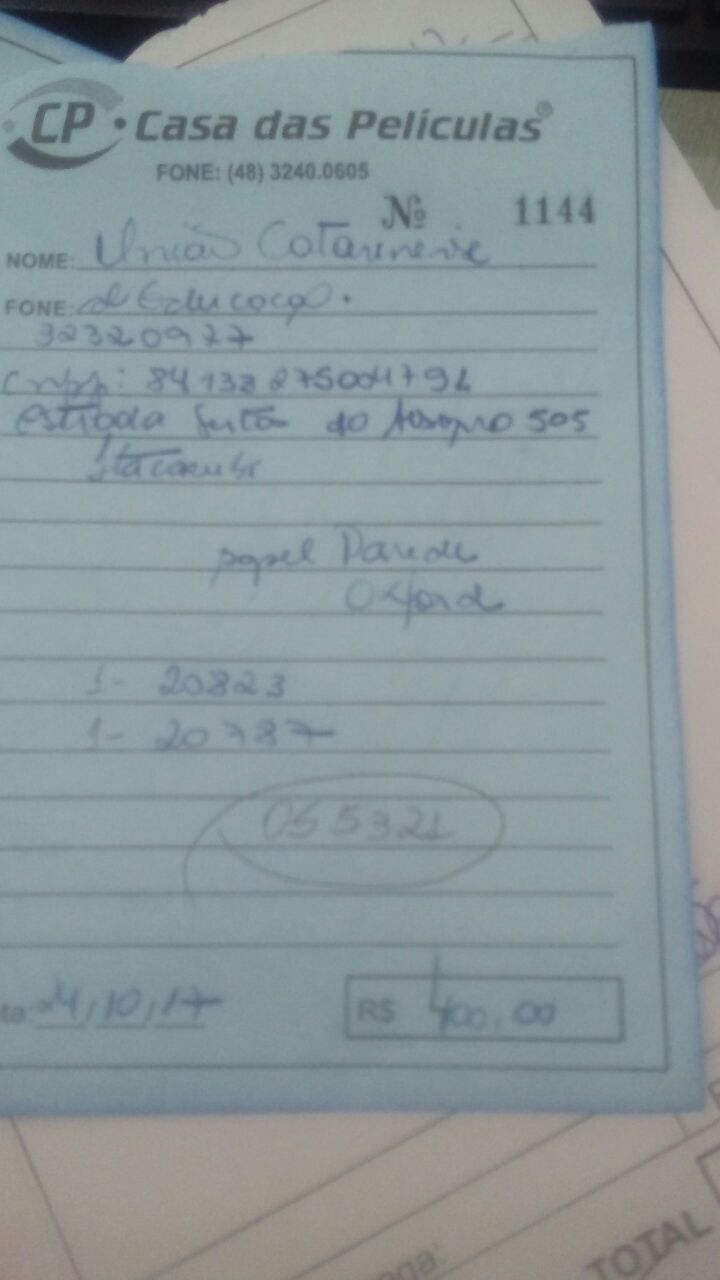 CP • Casa das Películas®
FONE: (48) 3240.0605
Nº 1144
NOME: União Catarinense
FONE: de Educação.
32320977
cnpj: 84
estrada do 505
papel Parede
Oxford
1- 20823
1- 20787
055321
ta: 24/10/17
R$ 400,00
TOTAL